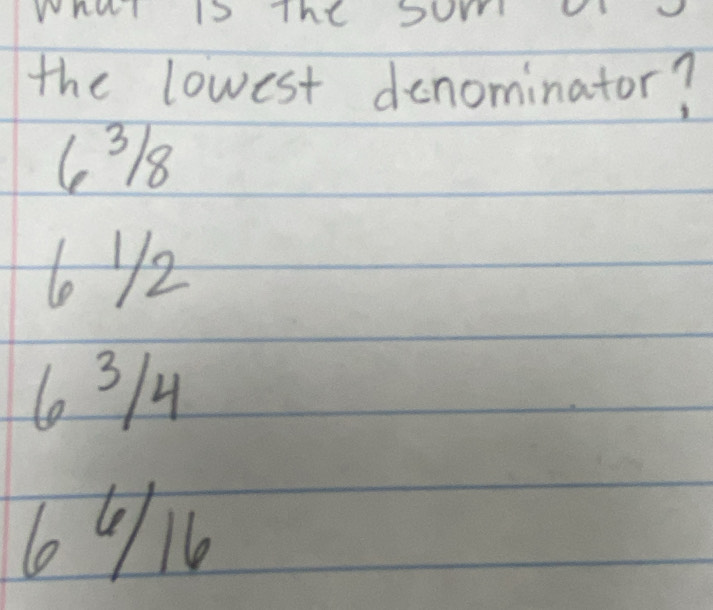 What is the sum of
the lowest denominator?
6 3/8
6 1/2
6 3/4
6 6/16